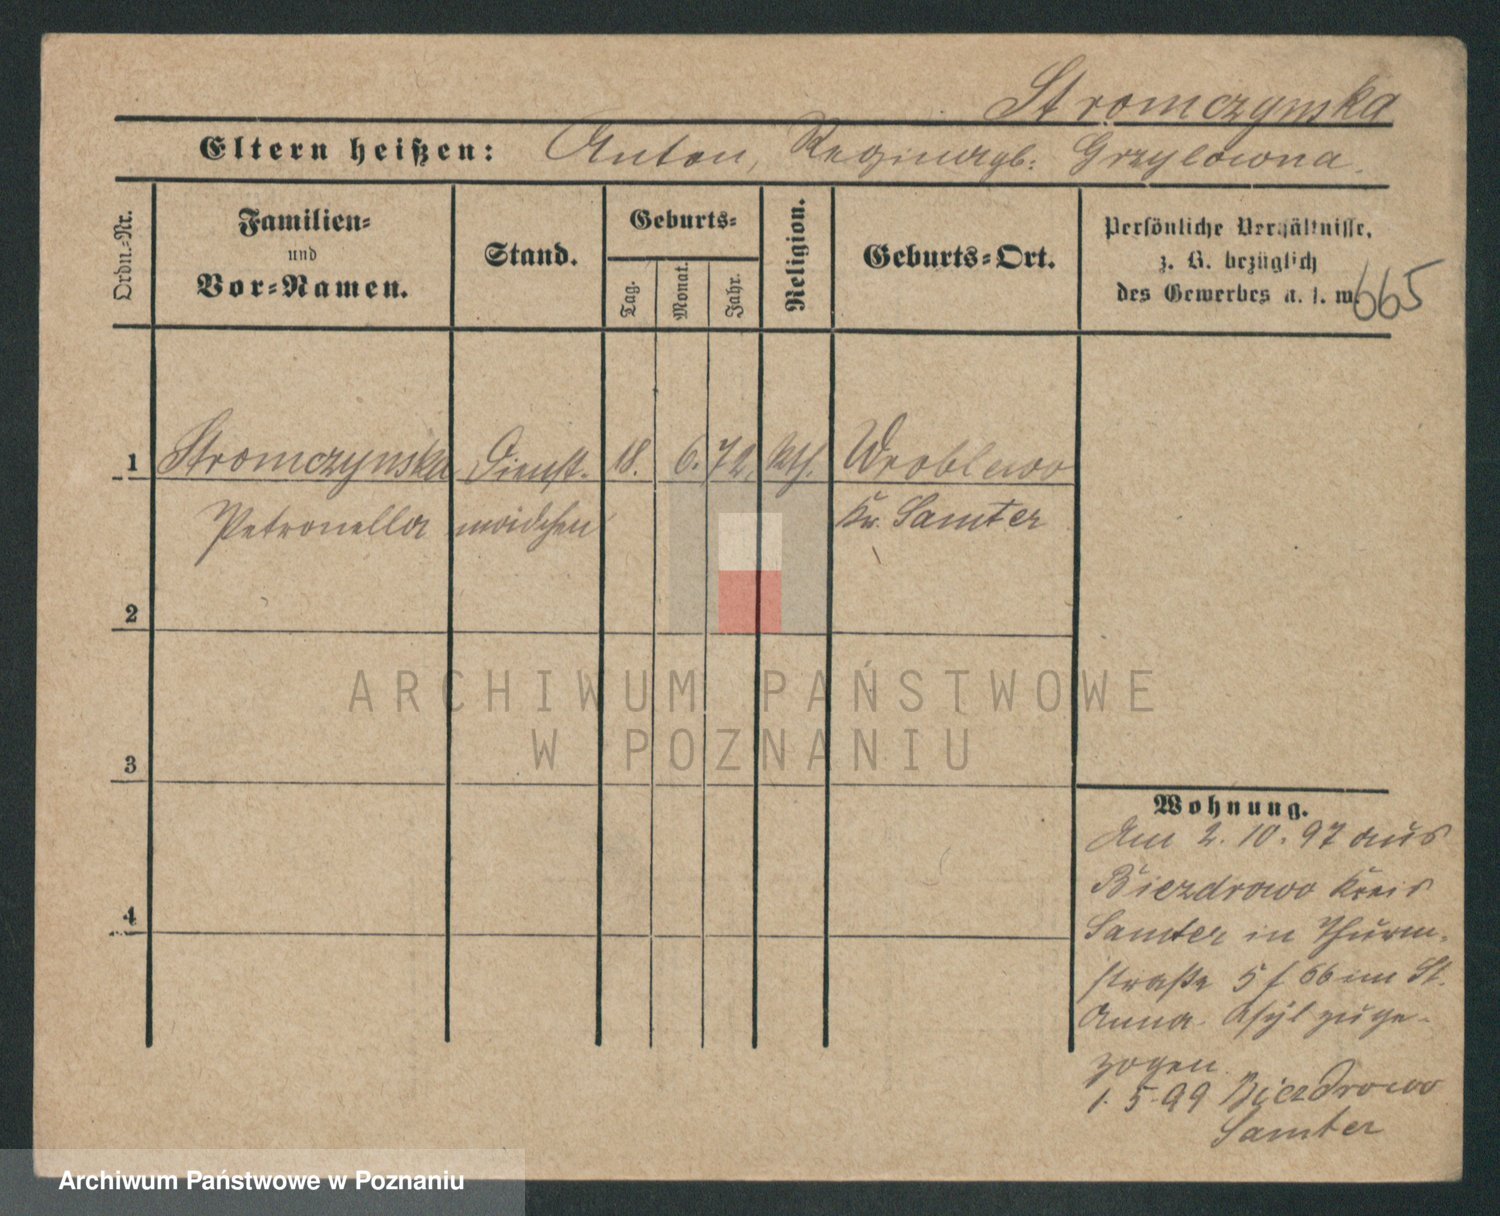 Stromczynska
Eltern heißen: Anton, Regina gb: Grzylowna.
Ordn.-Nr.
Familien-
und
Vor-Namen.
Stand.
Geburts-
Tag.
Monat.
Jahr.
Religion.
Geburts-Ort.
Persönliche Verhältnisse,
z. B. bezüglich
des Gewerbes u. s. w.
665
1 Stromczynska Dienst- 18. 6. 72. kth. Wroblewo
Petronella mädchen Kr. Samter
2
3
4
Wohnung.
Am 2. 10. 97 aus
Biezdrowo Kreis
Samter in Thurm-
straße 5 / 66 im St.
Anna-Asyl zuge-
zogen.
1. 5. 99 Biezdrowo
Samter
ARCHIWUM PAŃSTWOWE
W POZNANIU
Archiwum Państwowe w Poznaniu